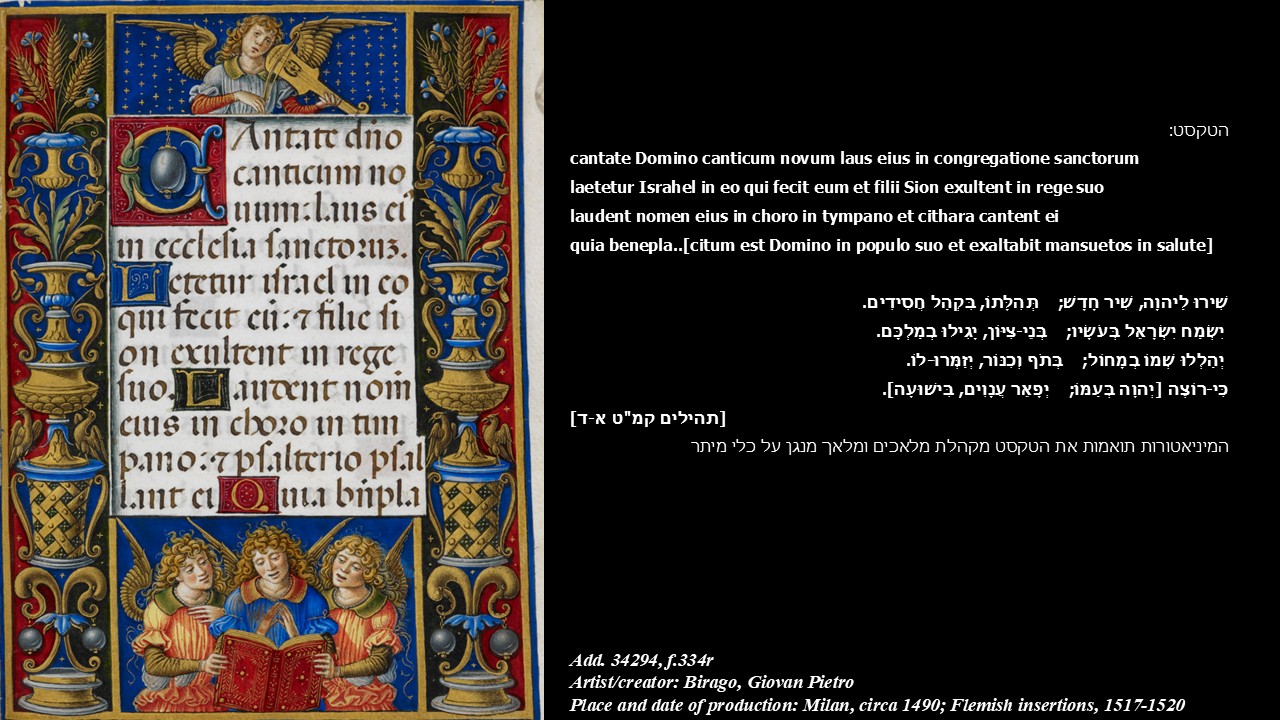 CAntate dño
canticum no
uum: laus ei'
in ecclesia sanctoruz.
Letetur israel in eo
qui fecit eũ: ⁊ filie si
on exultent in rege
suo. Laudent nom̃
eius in choro in tim
pano: ⁊ psalterio psal
lant ei Quia bñpla
הטקסט:
cantate Domino canticum novum laus eius in congregatione sanctorum
laetetur Israhel in eo qui fecit eum et filii Sion exultent in rege suo
laudent nomen eius in choro in tympano et cithara cantent ei
quia benepla..[citum est Domino in populo suo et exaltabit mansuetos in salute]
שִׁירוּ לַיהוָה, שִׁיר חָדָשׁ; תְּהִלָּתוֹ, בִּקְהַל חֲסִידִים.
יִשְׂמַח יִשְׂרָאֵל בְּעֹשָׂיו; בְּנֵי-צִיּוֹן, יָגִילוּ בְמַלְכָּם.
יְהַלְלוּ שְׁמוֹ בְמָחוֹל; בְּתֹף וְכִנּוֹר, יְזַמְּרוּ-לוֹ.
כִּי-רוֹצֶה [יְהוָה בְּעַמּוֹ; יְפָאֵר עֲנָוִים, בִּישׁוּעָה].
[תהילים קמ"ט א-ד]
המיניאטורות תואמות את הטקסט מקהלת מלאכים ומלאך מנגן על כלי מיתר
Add. 34294, f.334r
Artist/creator: Birago, Giovan Pietro
Place and date of production: Milan, circa 1490; Flemish insertions, 1517-1520